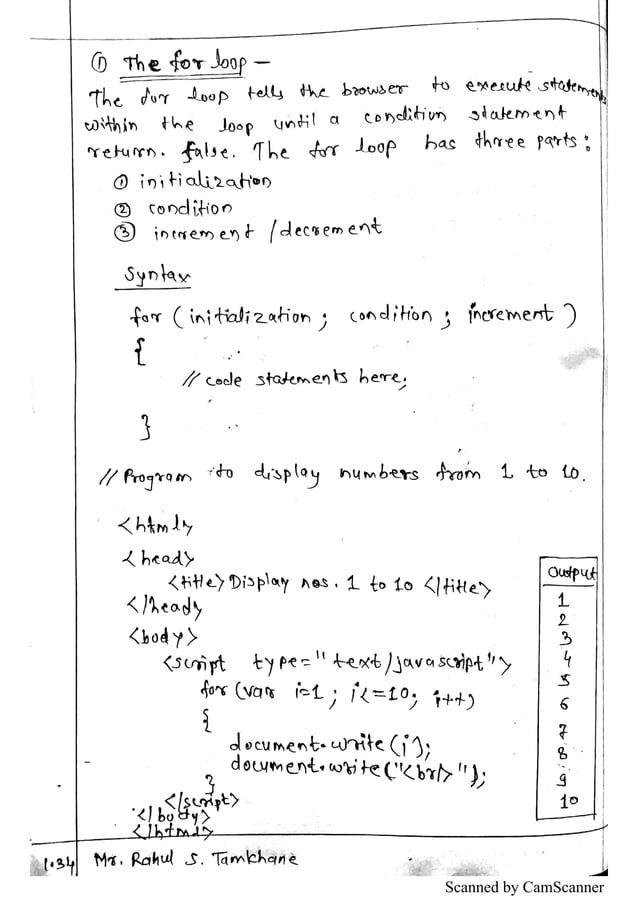 ① The for loop -
The for loop tells the browser to execute statements
within the loop until a condition statement
return. false. The for loop has three parts:
① initialization
② condition
③ increment /decrement
Syntax
for (initialization ; condition ; increment )
{
// code statements here;
}
// Program to display numbers from 1 to 10.
<html>
<head>
<title>Display nos. 1 to 10 </title>
</head>
<body>
<script type="text/javascript">
for (var i=1 ; i<=10; i++)
{
document.write(i);
document.write("<br/>");
}
</script>
</body>
</html>
Output
1
2
3
4
5
6
7
8
9
10
1.34 Mr. Rahul S. Tamkhane
Scanned by CamScanner